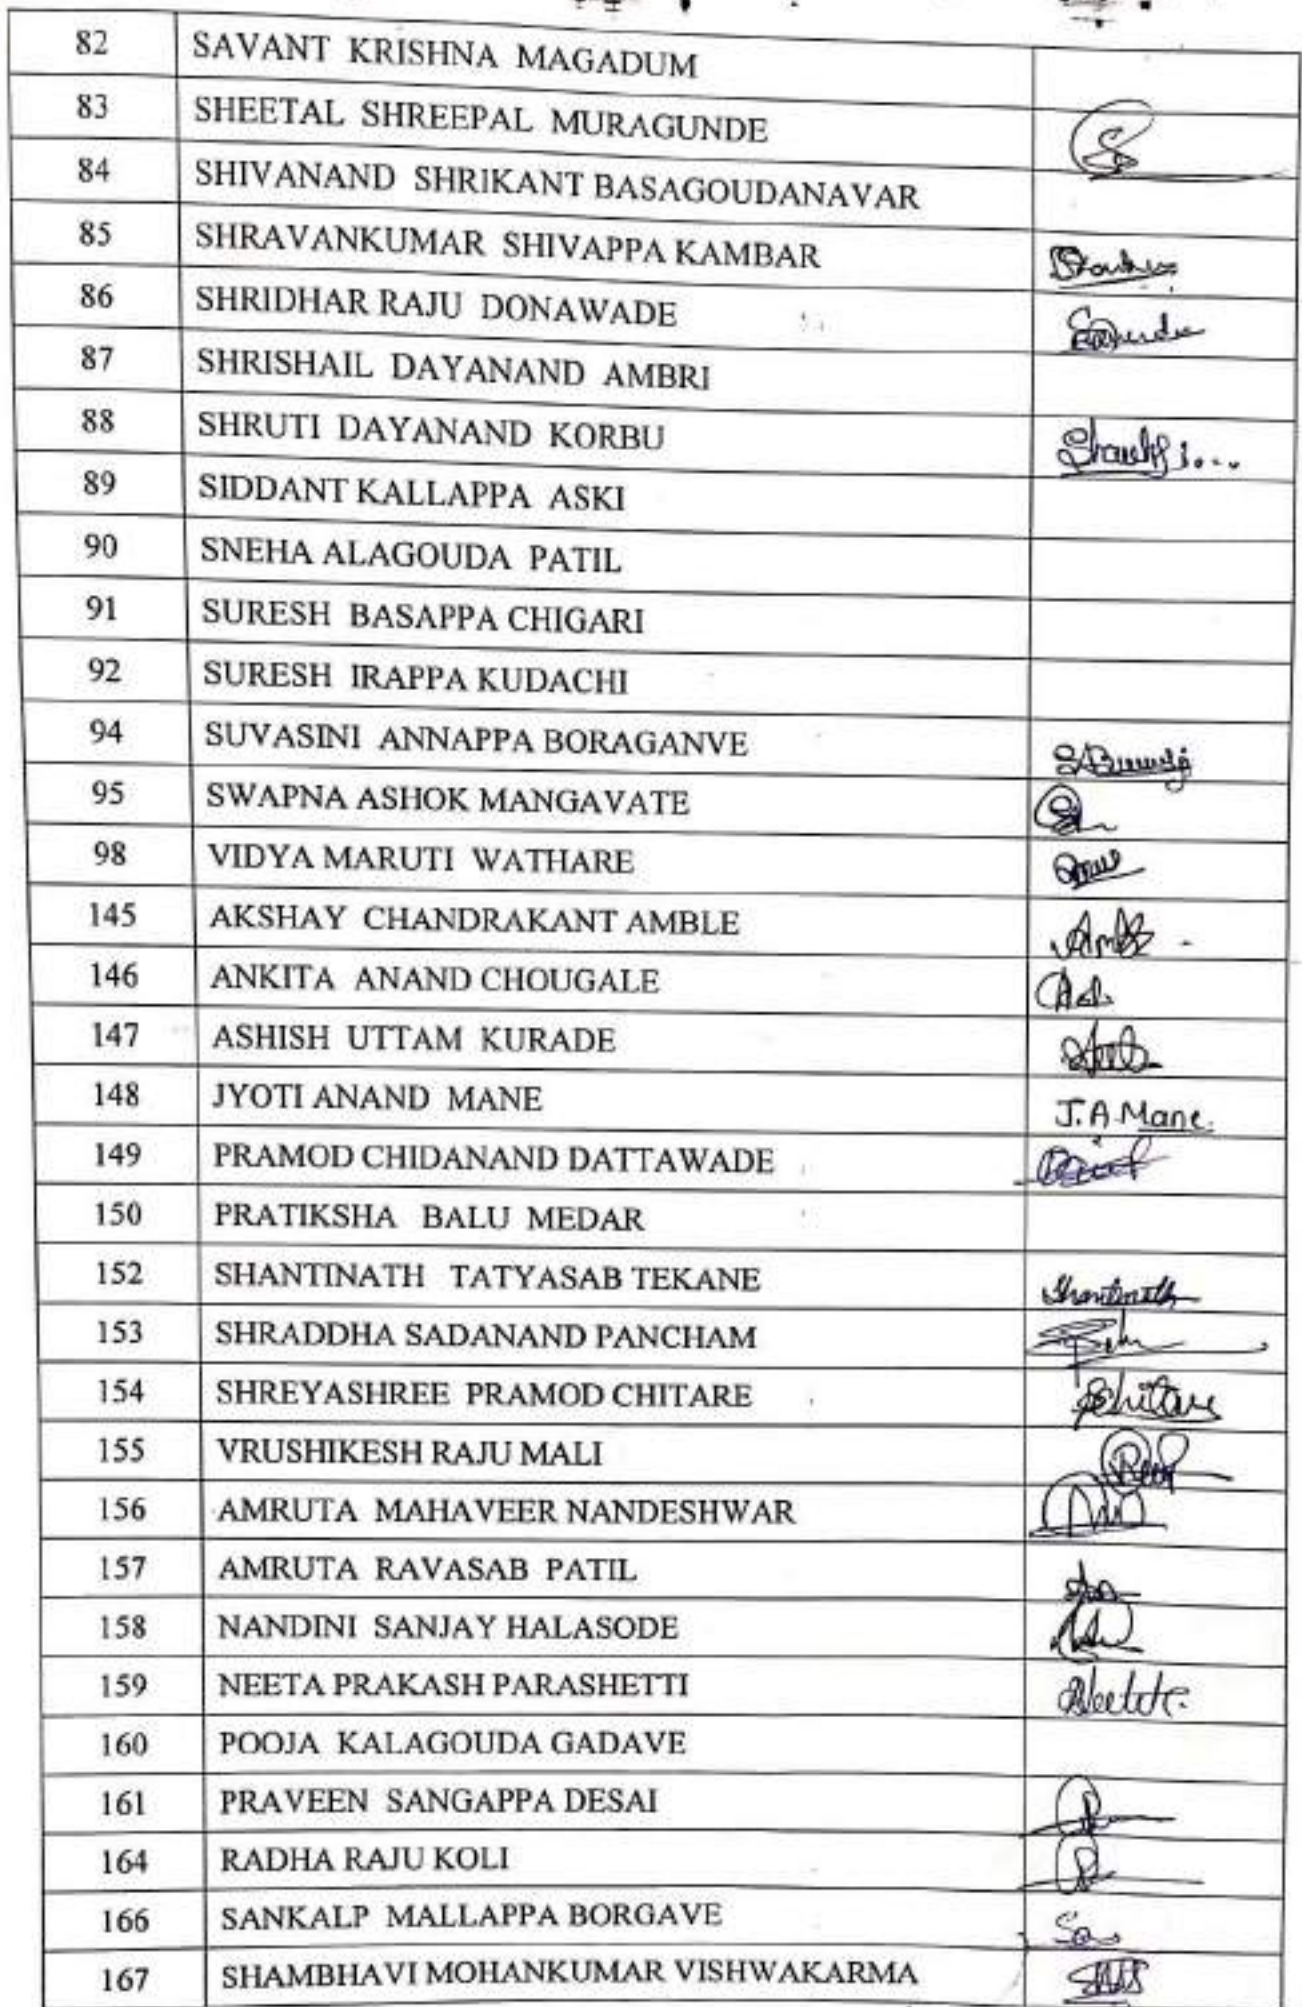 82 SAVANT KRISHNA MAGADUM
83 SHEETAL SHREEPAL MURAGUNDE
84 SHIVANAND SHRIKANT BASAGOUDANAVAR
85 SHRAVANKUMAR SHIVAPPA KAMBAR
86 SHRIDHAR RAJU DONAWADE
87 SHRISHAIL DAYANAND AMBRI
88 SHRUTI DAYANAND KORBU
89 SIDDANT KALLAPPA ASKI
90 SNEHA ALAGOUDA PATIL
91 SURESH BASAPPA CHIGARI
92 SURESH IRAPPA KUDACHI
94 SUVASINI ANNAPPA BORAGANVE
95 SWAPNA ASHOK MANGAVATE
98 VIDYA MARUTI WATHARE
145 AKSHAY CHANDRAKANT AMBLE
146 ANKITA ANAND CHOUGALE
147 ASHISH UTTAM KURADE
148 JYOTI ANAND MANE J.A.Mane.
149 PRAMOD CHIDANAND DATTAWADE
150 PRATIKSHA BALU MEDAR
152 SHANTINATH TATYASAB TEKANE Shantinath
153 SHRADDHA SADANAND PANCHAM
154 SHREYASHREE PRAMOD CHITARE
155 VRUSHIKESH RAJU MALI
156 AMRUTA MAHAVEER NANDESHWAR
157 AMRUTA RAVASAB PATIL
158 NANDINI SANJAY HALASODE
159 NEETA PRAKASH PARASHETTI
160 POOJA KALAGOUDA GADAVE
161 PRAVEEN SANGAPPA DESAI
164 RADHA RAJU KOLI
166 SANKALP MALLAPPA BORGAVE
167 SHAMBHAVI MOHANKUMAR VISHWAKARMA